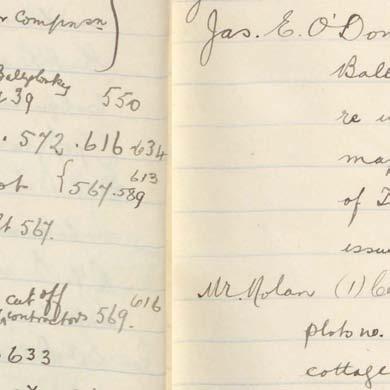 r Compnsn
39 550
. 572 . 616 . 634
ot { 567 . 589 613
t 567.
cut off
contractors 569. 616
633
Jas. E. O'Don
Ball
re
map
of
issu
Mr. Nolan (1)
plots no.
cottage